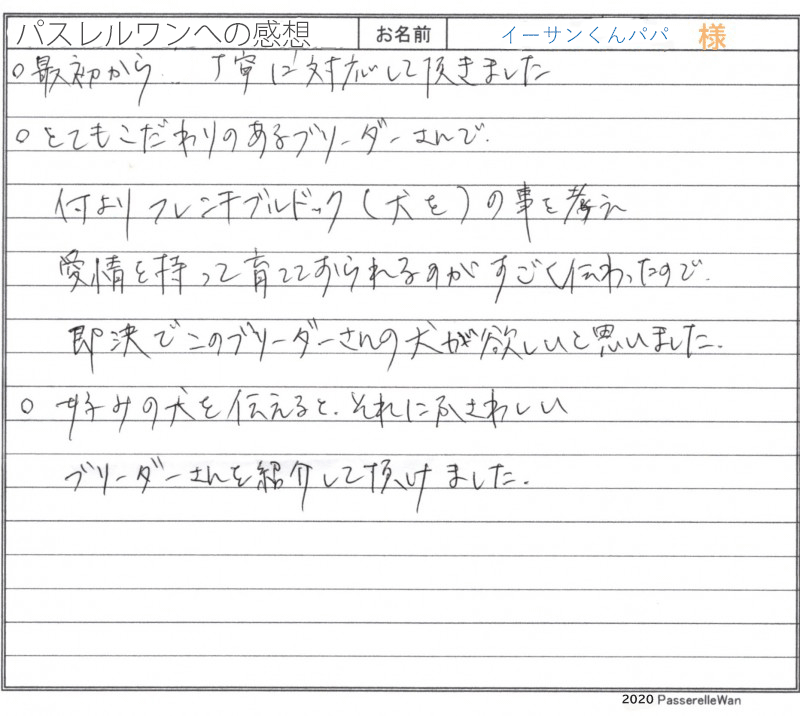 パスレルワンへの感想 お名前 イーサンくんパパ 様
○最初から 丁寧に対応して頂きました
○とてもこだわりのあるブリーダーさんで、
何よりフレンチブルドック(犬を)の事を考え
愛情を持って育てておられるのがすごく伝わったので、
即決でこのブリーダーさんの犬が欲しいと思いました。
○ 好みの犬を伝えると、それにふさわしい
ブリーダーさんを紹介して頂けました。
2020 PasserelleWan